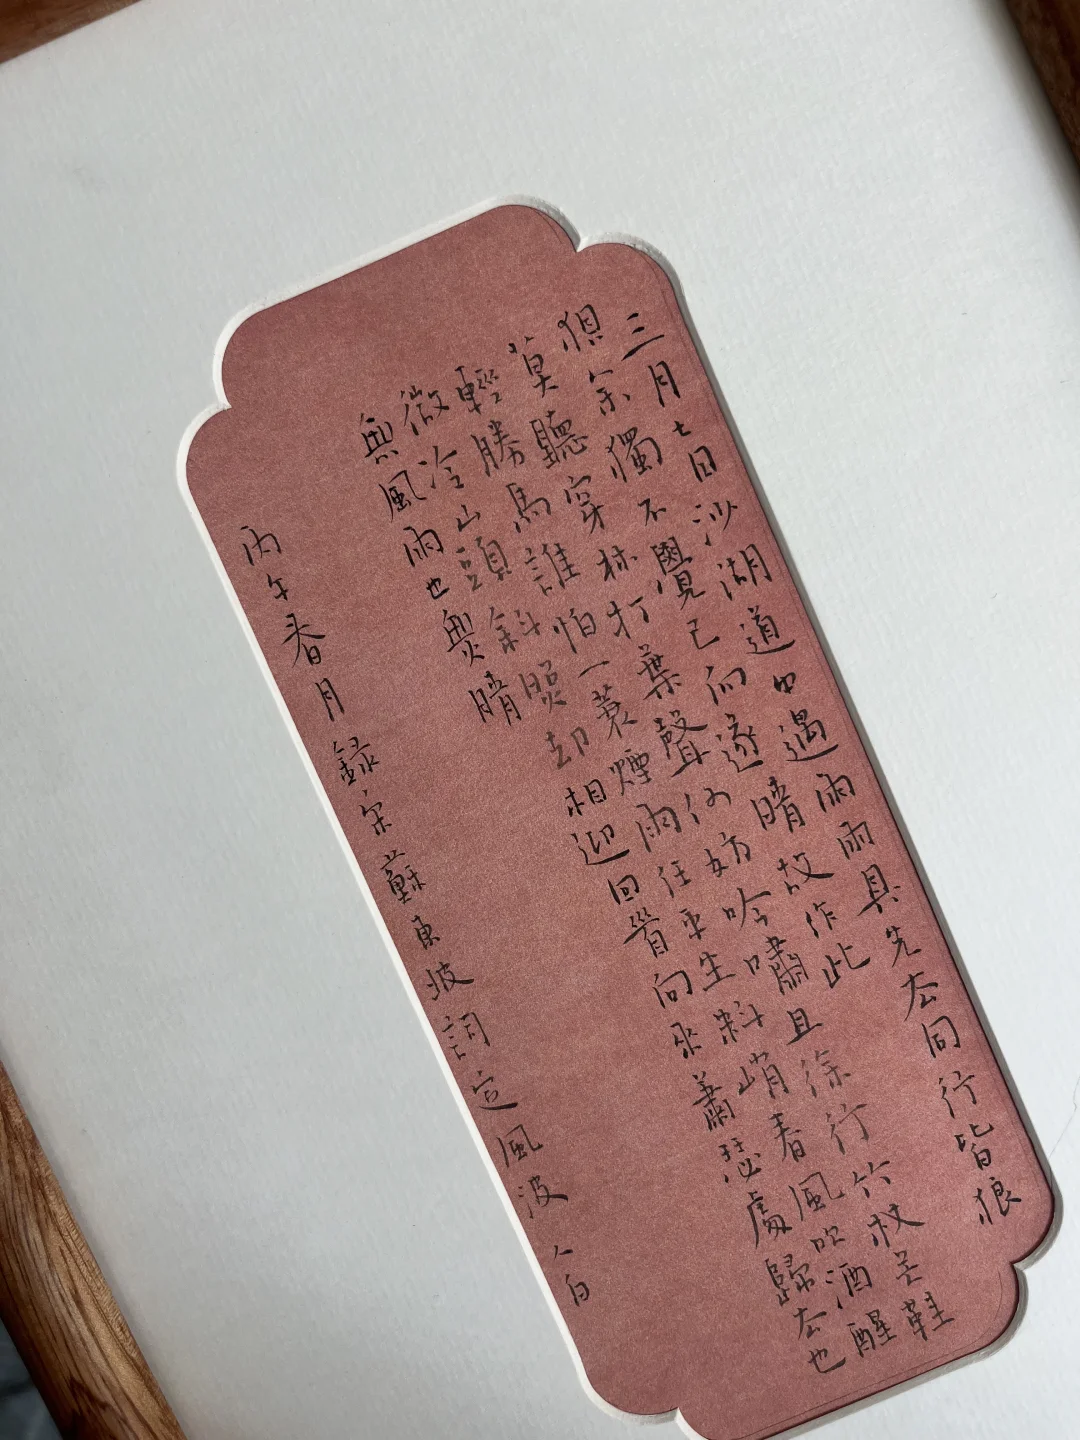 三月七日沙湖道中遇雨雨具先去同行皆狼
狽余獨不覺已而遂晴故作此
莫聽穿林打葉聲何妨吟嘯且徐行竹杖芒鞋
輕勝馬誰怕一蓑煙雨任平生料峭春風吹酒醒
微冷山頭斜照却相迎回首向來蕭瑟處歸去也
無風雨也無晴
丙午春月録宋蘇東坡詞定風波